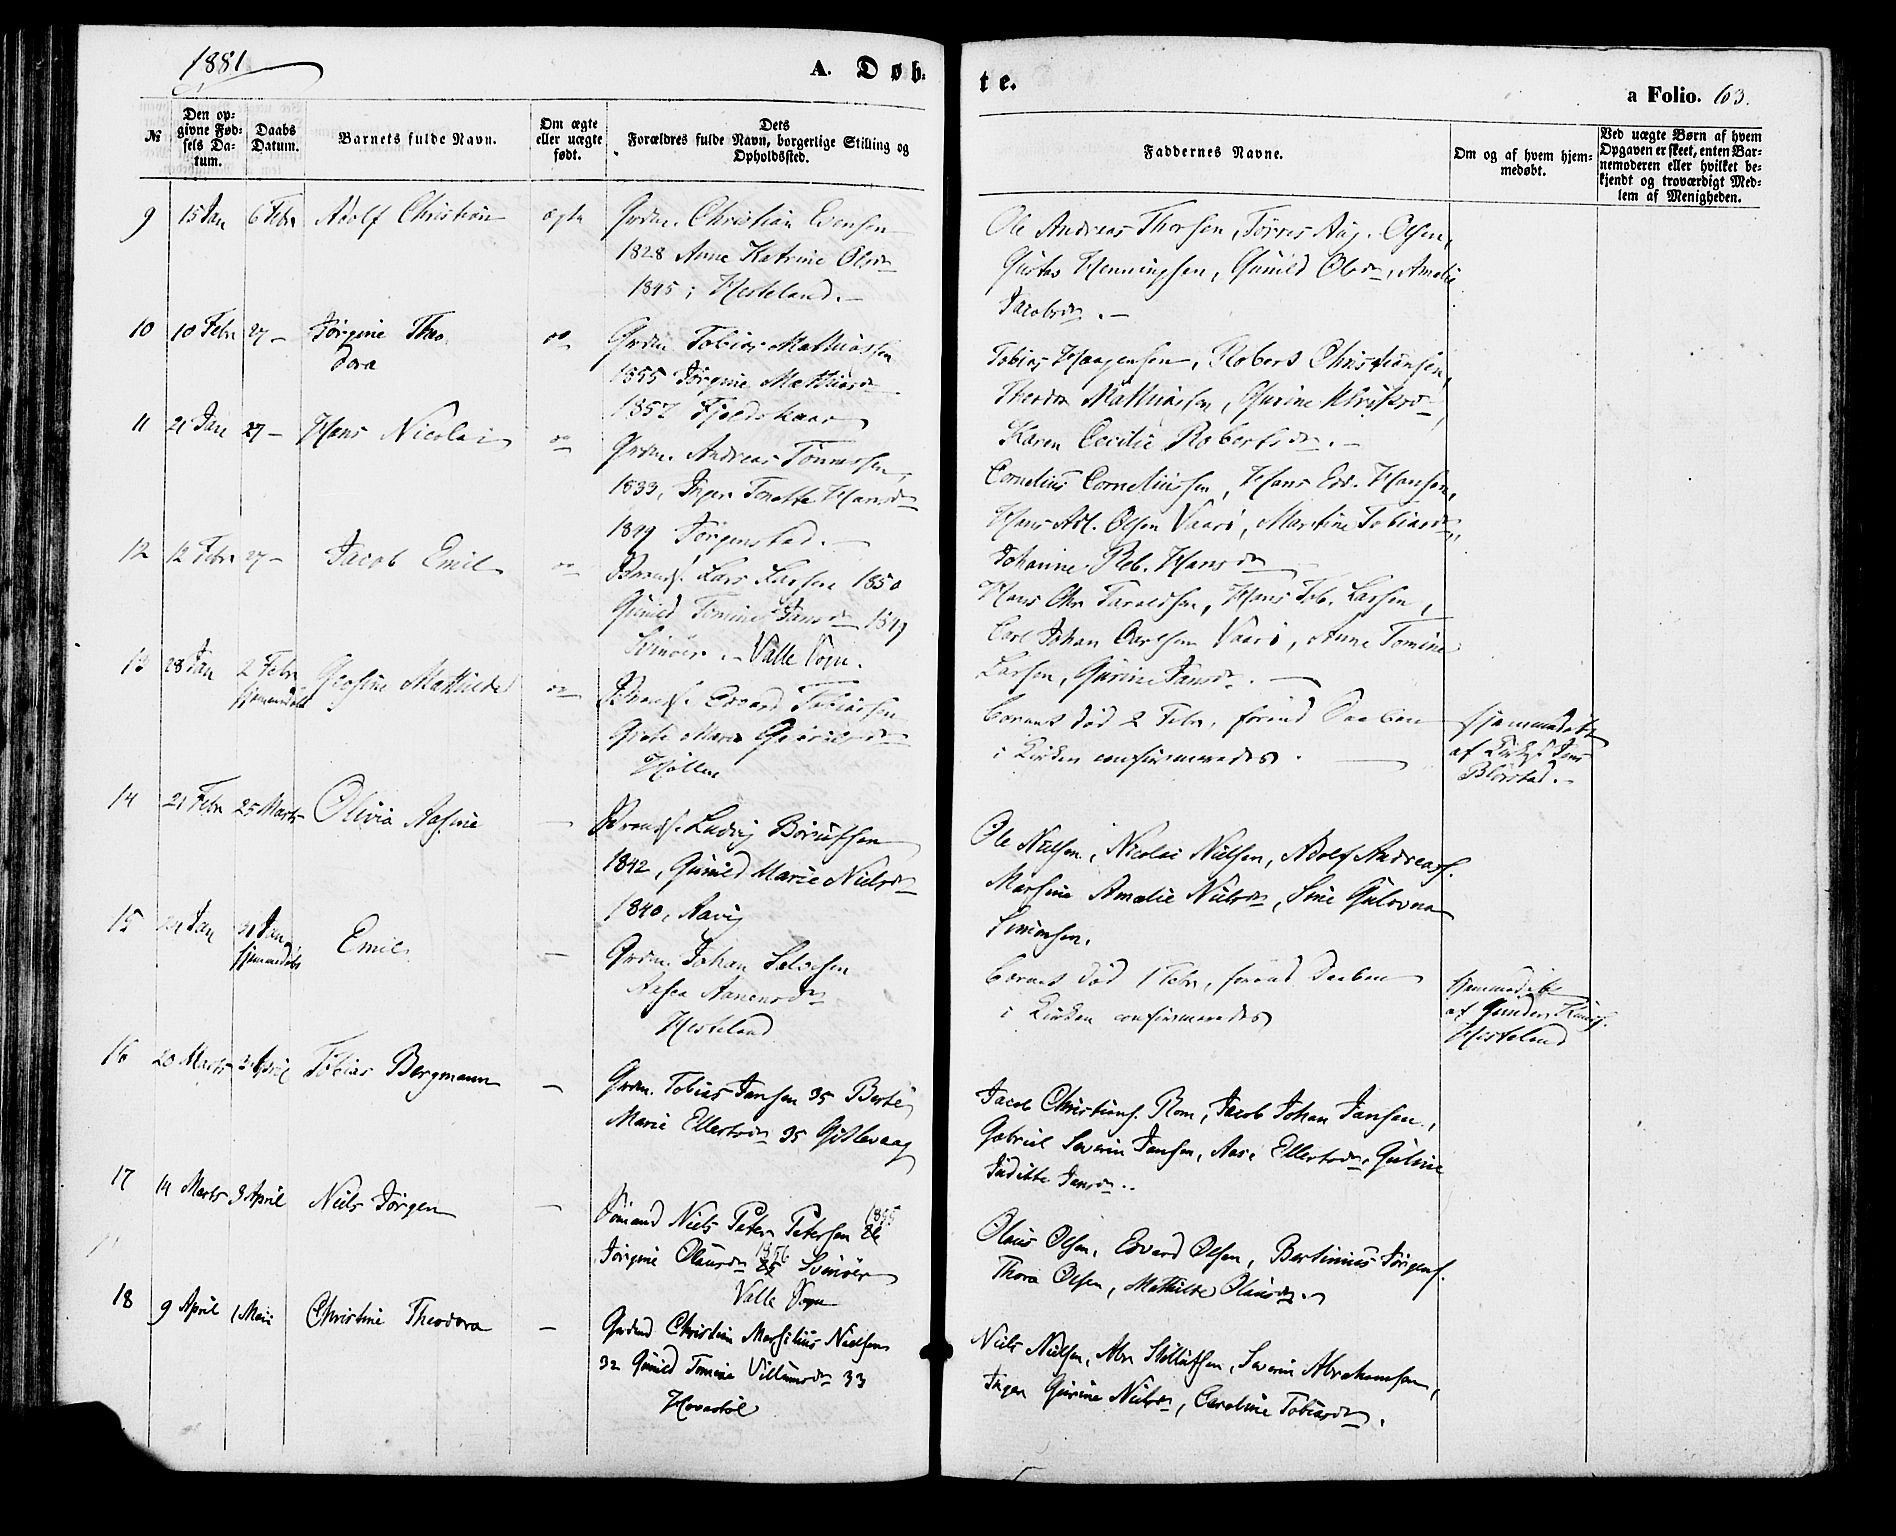 1881
A. Døb-
te.
a Folio. 63.
№
Den op-
givne Fød-
sels Da-
tum.
Daabs
Datum.
Barnets fulde Navn.
Om ægte
eller uægte
født.
Dets
Forældres fulde Navn, borgerlige Stilling og
Opholdssted.
Faddernes Navne.
Om og af hvem hjem-
medøbt.
Ved uægte Børn af hvem
Opgaven er skeet, enten Bar-
nemoderen eller hvilket be-
kjendt og troværdigt Med-
lem af Menigheden.
9 15 Jan 6 Febr Adolf Christian ægte Grdm. Christian Evensen
1828 Anne Katrine Olsdr
1845; Hesteland.
Ole Andreas Thorsen, Tørres Aug. Olsen,
Gustav Henningsen, Gunild Olsdr, Amalie
Jacobsdr.
10 10 Febr 27 – Jørgine Theo
dora
Grdm. Tobias Mathiassen
1855 Jørgine Mathiasdr
1857 Fjeldskaar
Tobias Haagensen, Robert Christiansen,
Theodor Mathiassen, Gurine
Karen Cecilie Robertsdr.
11 21 Jan 27 – Hans Nicolai
Grdm. Andreas Tønnessen,
1833, Inger Tonette Hansdr
1849 Jørgenstad.
Cornelius Corneliussen, Hans Edv. Hansen,
Hans Adl. Olsen Vaarø, Martine Tobiasdr,
Johanne Reb. Hansdr
12 12 Febr 27 – Jacob Emil
Lars Larsen 1850
Gunild Tomine Jansdr 1849
Svinøer. – Valle Sogn.
Hans Chr Taraldsen, Hans Tob. Larsen,
Carl Johan Carlsen Vaarø, Anne Tomine
Larsen, Gurine Jansdr.
13 28 Jan 2 Febr
hjemmedøbt
Mathilde
Edvard Tobiassen
Marie
Høllen
Barnet død 2 Febr. forind Daaben
i Kirken confirmeredes.
hjemmedøbt
af Jens
14 21 Febr 25 Marts Olivia Aasine –
Ludvig Børuffsen
1842, Gunild Marie Nielsdr
1840, Aavig
Ole Nielsen, Nicolai Nielsen, Adolf Andreass.
Marsine Amalie Nielsdr, Sine Gulovna
Simonsen.
15 24 Jan 31 Jan
hjemmedøbt
Emil –
Grdm. Johan Salvesen
Aasea Aanensdr
Hesteland
Barnet død 1 Febr, forind Daaben
i Kirken confirmeredes
hjemmedøbt
af Gunder
Hesteland
16 20 Marts 3 April Tobias Bergmann –
Grdm. Tobias Jansen 35 Berte
Marie Ellertsdr 35 Gitlevaag
Jacob Christians. Rom, Jacob Johan Jansen,
Gabriel Severin Jansen, Aase Ellertsdr, Guline
Juditte Jansdr.
17 14 Marts 3 April Niels Jørgen –
Sømand Niels Peter Petersen 1855
Jørgine Olausdr 1856 Svinøer
Valle Sogn
Olaus Olsen, Edvard Olsen, Bertinius Jørgens.
Thora Olsen, Mathilde Olausdr.
18 9 April 1 Mai Christine Theodora –
Grdmd Christian Marsilius Nielsen
32 Gunild Tomine Villumsdr 33
Haverstøl
Niels Nielsen, Abr Salluffsen, Severin Abrahamsen,
Inger Gurine Nielsdr, Caroline Tobiasdr.